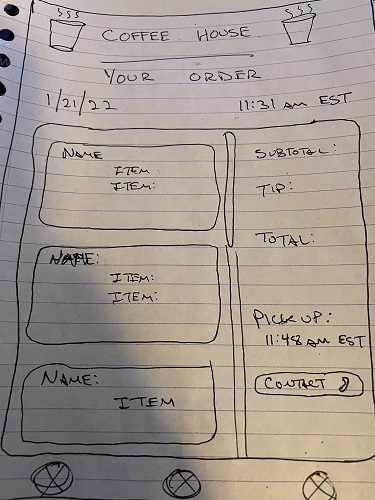 COFFEE HOUSE
YOUR ORDER
1/21/22 11:31 AM EST
NAME
ITEM:
ITEM:
NAME:
ITEM:
ITEM:
NAME:
ITEM
SUBTOTAL:
TIP:
TOTAL:
PICK UP:
11:48 AM EST
CONTACT